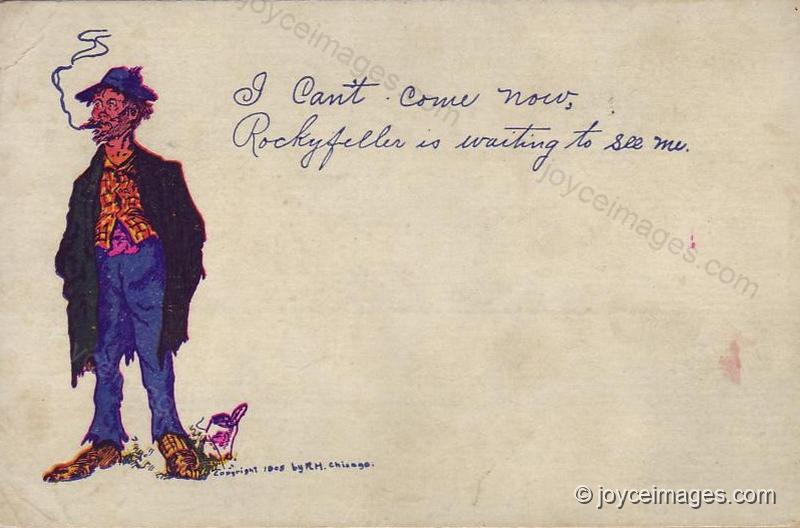 I Can't come now,
Rockyfeller is waiting to see me.
Copyright 1905 by R.H. Chicago.
joyceimages.com
joyceimages.com
© joyceimages.com